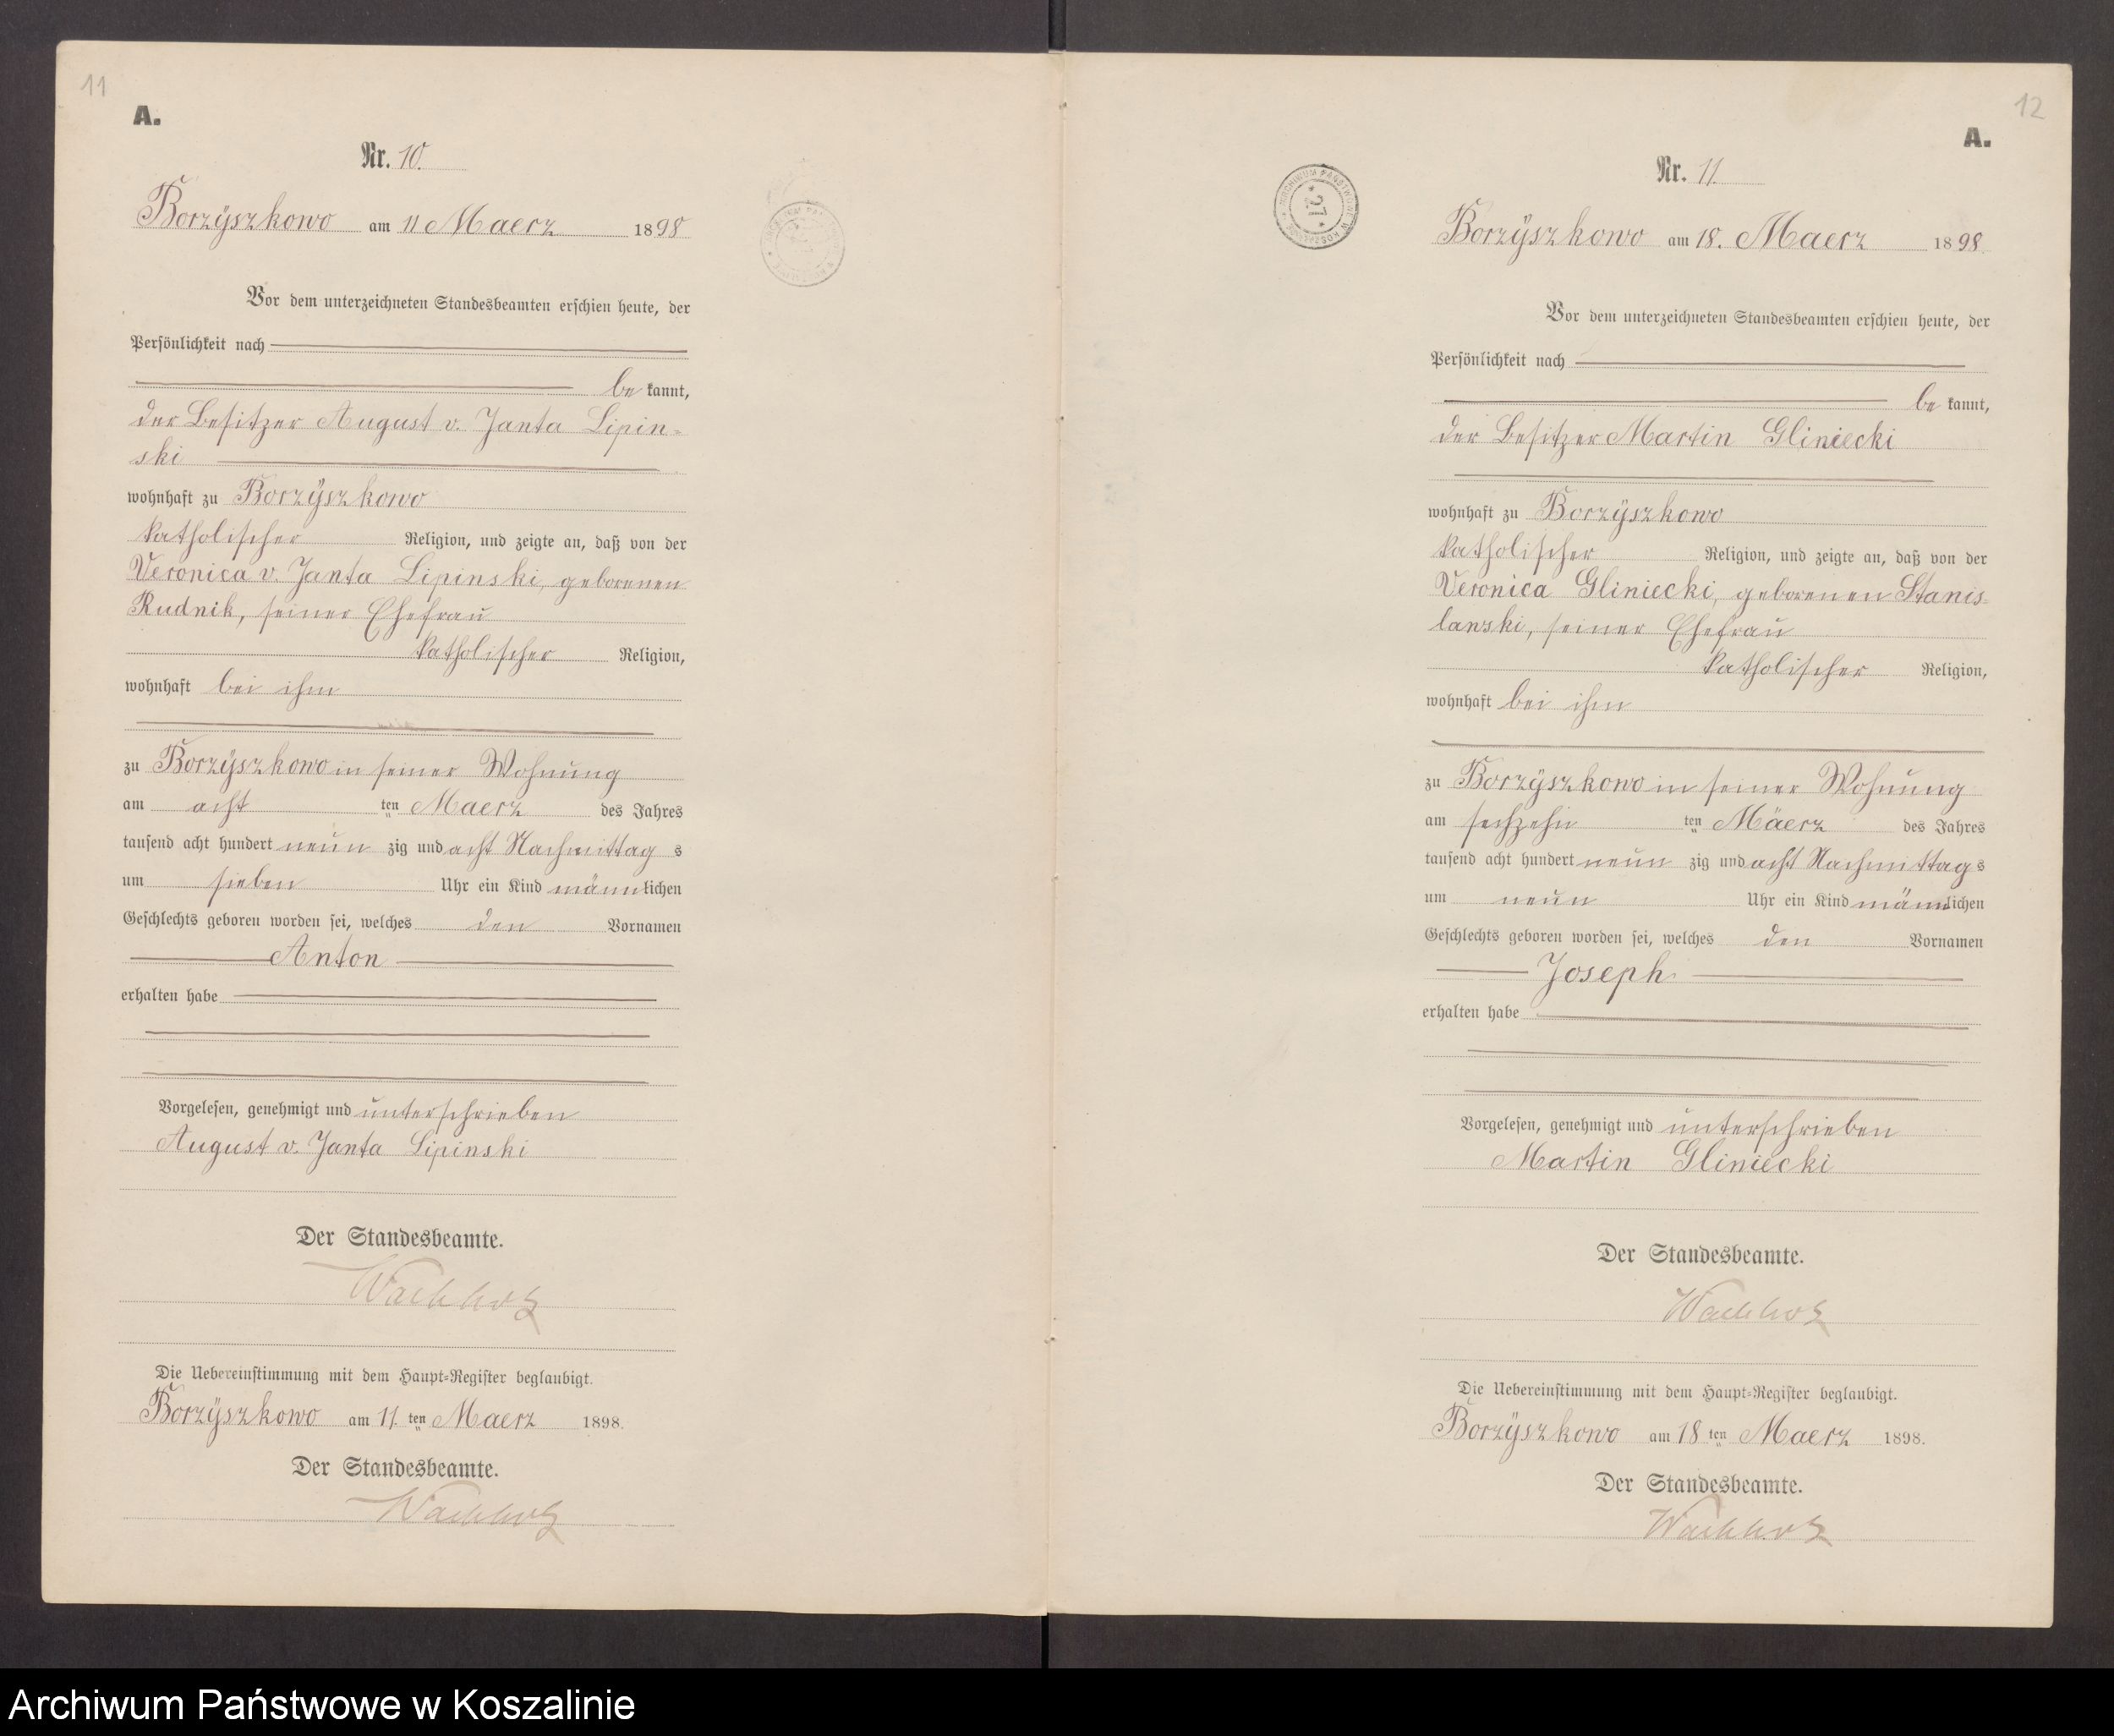 11
A.
Nr. 10.
Borzÿszkowo am 11 Maerz 1898
Vor dem unterzeichneten Standesbeamten erschien heute, der
Persönlichkeit nach
be kannt,
der Besitzer August v. Janta Lipin-
ski
wohnhaft zu Borzÿszkowo
katholischer Religion, und zeigte an, daß von der
Veronica v. Janta Lipinski, geborenen
Rudnik, seiner Ehefrau
katholischer Religion,
wohnhaft bei ihm
zu Borzÿszkowo in seiner Wohnung
am acht ten Maerz des Jahres
tausend acht hundert neun zig und acht Nachmittag s
um sieben Uhr ein Kind männlichen
Geschlechts geboren worden sei, welches den Vornamen
Anton
erhalten habe
Vorgelesen, genehmigt und unterschrieben
August v. Janta Lipinski
Der Standesbeamte.
Wachholz
Die Uebereinstimmung mit dem Haupt-Register beglaubigt.
Borzÿszkowo am 11. ten Maerz 1898.
Der Standesbeamte.
Wachholz
12
A.
ARCHIWUM PAŃSTWOWE W KOSZALINIE
* 27 *
Nr. 11.
Borzÿszkowo am 18. Maerz 1898.
Vor dem unterzeichneten Standesbeamten erschien heute, der
Persönlichkeit nach
be kannt,
der Besitzer Martin Gliniecki
wohnhaft zu Borzÿszkowo
katholischer Religion, und zeigte an, daß von der
Veronica Gliniecki, geborenen Stanis-
lawski, seiner Ehefrau
katholischer Religion,
wohnhaft bei ihm
zu Borzÿszkowo in seiner Wohnung
am sechzehn ten Mäerz des Jahres
tausend acht hundert neun zig und acht Nachmittag s
um neun Uhr ein Kind männlichen
Geschlechts geboren worden sei, welches den Vornamen
Joseph
erhalten habe
Vorgelesen, genehmigt und unterschrieben
Martin Gliniecki
Der Standesbeamte.
Wachholz
Die Uebereinstimmung mit dem Haupt-Register beglaubigt.
Borzÿszkowo am 18 ten Maerz 1898.
Der Standesbeamte.
Wachholz
Archiwum Państwowe w Koszalinie